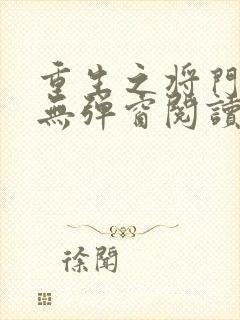 重生之将門
無彈窗閱讀
徐聞